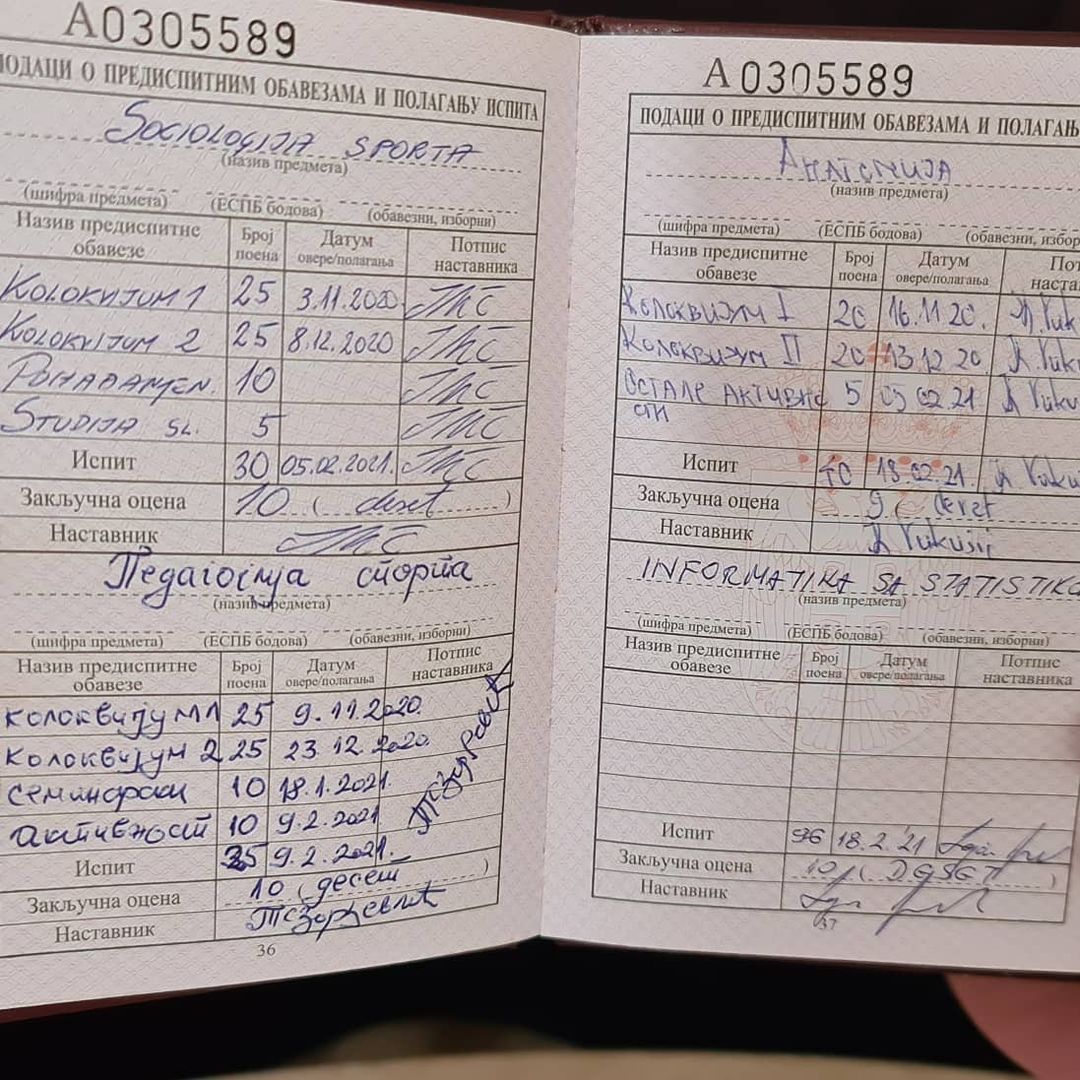 A0305589
ПОДАЦИ О ПРЕДИСПИТНИМ ОБАВЕЗАМА И ПОЛАГАЊУ ИСПИТА
SOCIOLOGIJA SPORTA
(назив предмета)
(шифра предмета) (ЕСПБ бодова) (обавезни, изборни)
Назив предиспитне обавезе Број поена Датум овере/полагања Потпис наставника
KOLOKVIJUM 1 25 3.11.2020.
KOLOKVIJUM 2 25 8.12.2020
POHAĐANJE N. 10
STUDIJA SL. 5
Испит 30 05.02.2021.
Закључна оцена 10 ( deset )
Наставник
Педагогија спорта
(назив предмета)
(шифра предмета) (ЕСПБ бодова) (обавезни, изборни)
Назив предиспитне обавезе Број поена Датум овере/полагања Потпис наставника
колоквијум 1 25 9.11.2020.
колоквијум 2 25 23.12.2020.
семинарски 10 18.1.2021.
активност 10 9.2.2021
Испит 9.2.2021.
Закључна оцена 10 (десет )
Наставник
36
A0305589
ПОДАЦИ О ПРЕДИСПИТНИМ ОБАВЕЗАМА И ПОЛАГАЊ
Анатомија
(назив предмета)
(шифра предмета) (ЕСПБ бодова) (обавезни, избор
Назив предиспитне обавезе Број поена Датум овере/полагања
Колоквијум I 20 16.11.20.
Колоквијум II 20 13.12.20.
ОСТАЛЕ АКТИВНОСТИ 5 05.02.21
Испит 18.02.21.
Закључна оцена 9 ( devet
Наставник
INFORMATIKA SA STATISTIKO
(назив предмета)
(шифра предмета) (ЕСПБ бодова) (обавезни, изборни)
Назив предиспитне обавезе Број поена Датум овере/полагања Потпис наставника
Испит 96 18.2.21
Закључна оцена 10 ( DESET )
Наставник
37